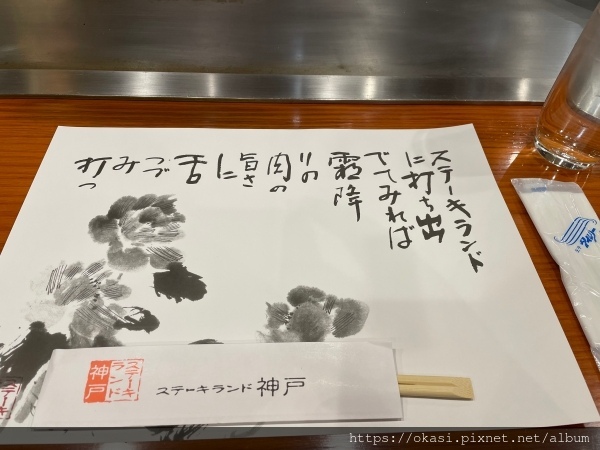 ステーキランド
に打ち出
でてみれば
霜降
りの
肉の
旨さ
に
舌
つづ
みみ
打つ
ステーキ
ランド
神戸
ステーキランド神戸
ステーキ
https://okasi.pixnet.net/album